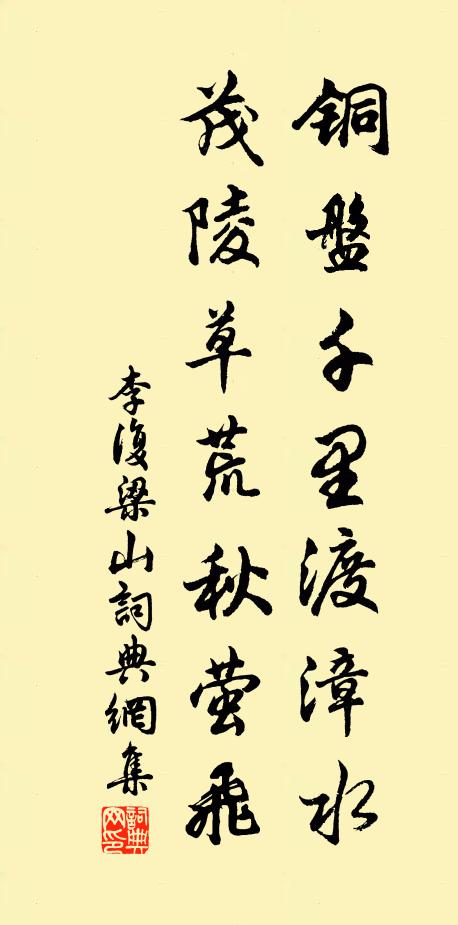 銅盤千里渡漳水
茂陵草荒秋萤飛
李復梁山詞典網集
詞典網印